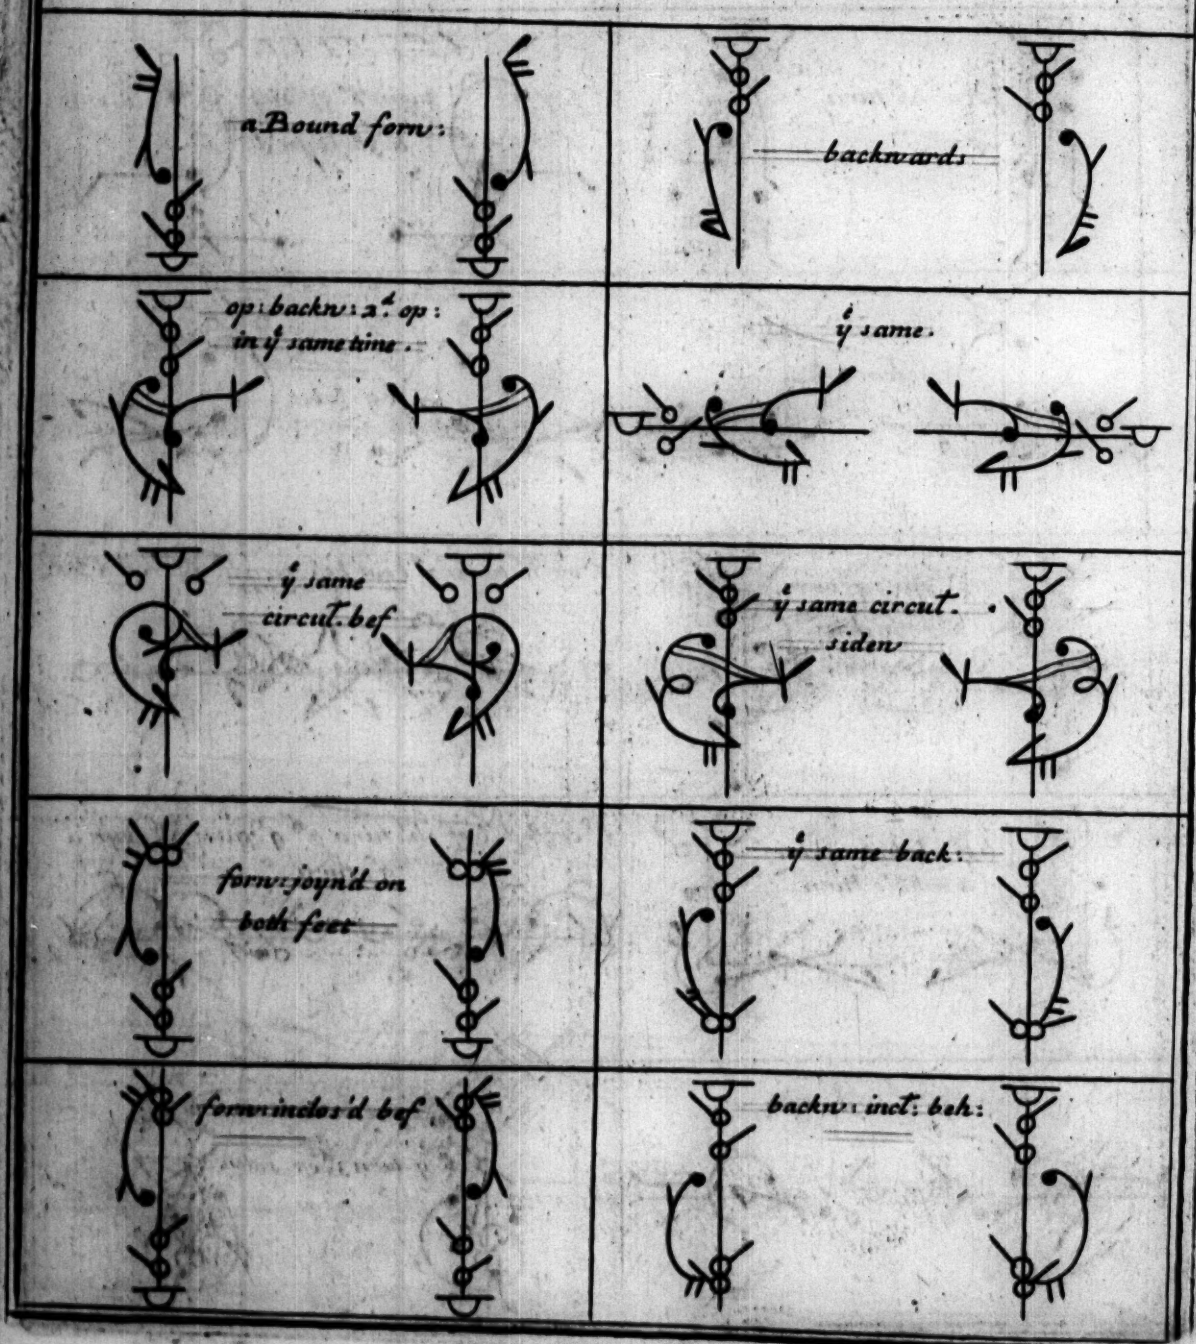 a Bound forw:
backwards
op: backw: 2.d op:
in ye same time.
ye same.
ye same
circut. bef
ye same circut.
sidew
forw: joyn'd on
both feet
ye same back:
forw: inclos'd bef
backw: incl: beh: